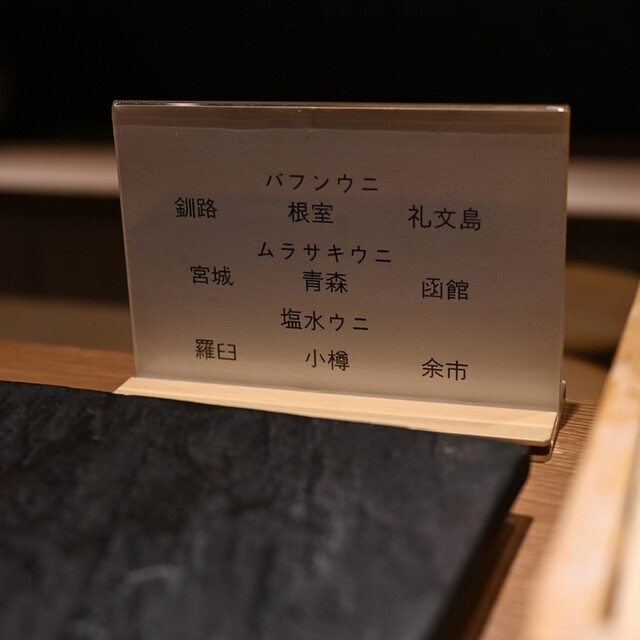 バフンウニ
釧路 根室 礼文島
ムラサキウニ
宮城 青森 函館
塩水ウニ
羅臼 小樽 余市